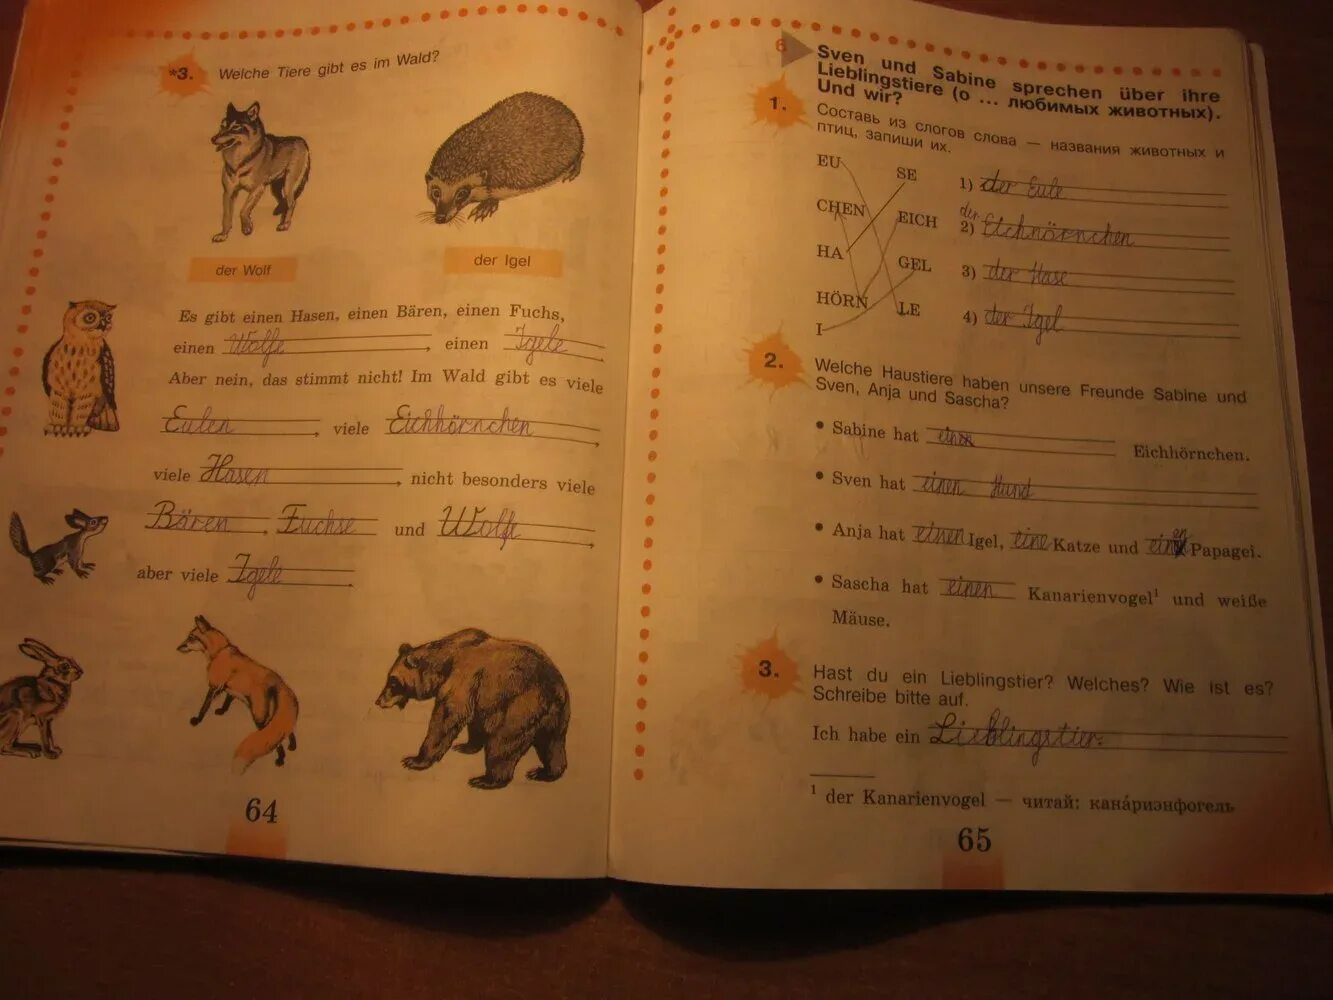 *3. Welche Tiere gibt es im Wald?
der Wolf
der Igel
Es gibt einen Hasen, einen Bären, einen Fuchs,
einen Wolfe, einen Igele
Aber nein, das stimmt nicht! Im Wald gibt es viele
Eulen, viele Eichhörnchen,
viele Hasen, nicht besonders viele
Bären, Fuchse und Wolfe,
aber viele Igele
64
6
Sven und Sabine sprechen über ihre
Lieblingstiere (о ... любимых животных).
Und wir?
1. Составь из слогов слова — названия животных и
птиц, запиши их.
EU
SE
CHEN
EICH
HA
GEL
HÖRN
LE
I
1) der Eule
der
2) Eichhörnchen
3) der Hase
4) der Igel
2. Welche Haustiere haben unsere Freunde Sabine und
Sven, Anja und Sascha?
• Sabine hat einen Eichhörnchen.
• Sven hat einen Hund
• Anja hat einen Igel, eine Katze und einen Papagei.
• Sascha hat einen Kanarienvogel¹ und weiße
Mäuse.
3. Hast du ein Lieblingstier? Welches? Wie ist es?
Schreibe bitte auf.
Ich habe ein Lieblingstier.
¹ der Kanarienvogel — читай: кана́риэнфогель
65